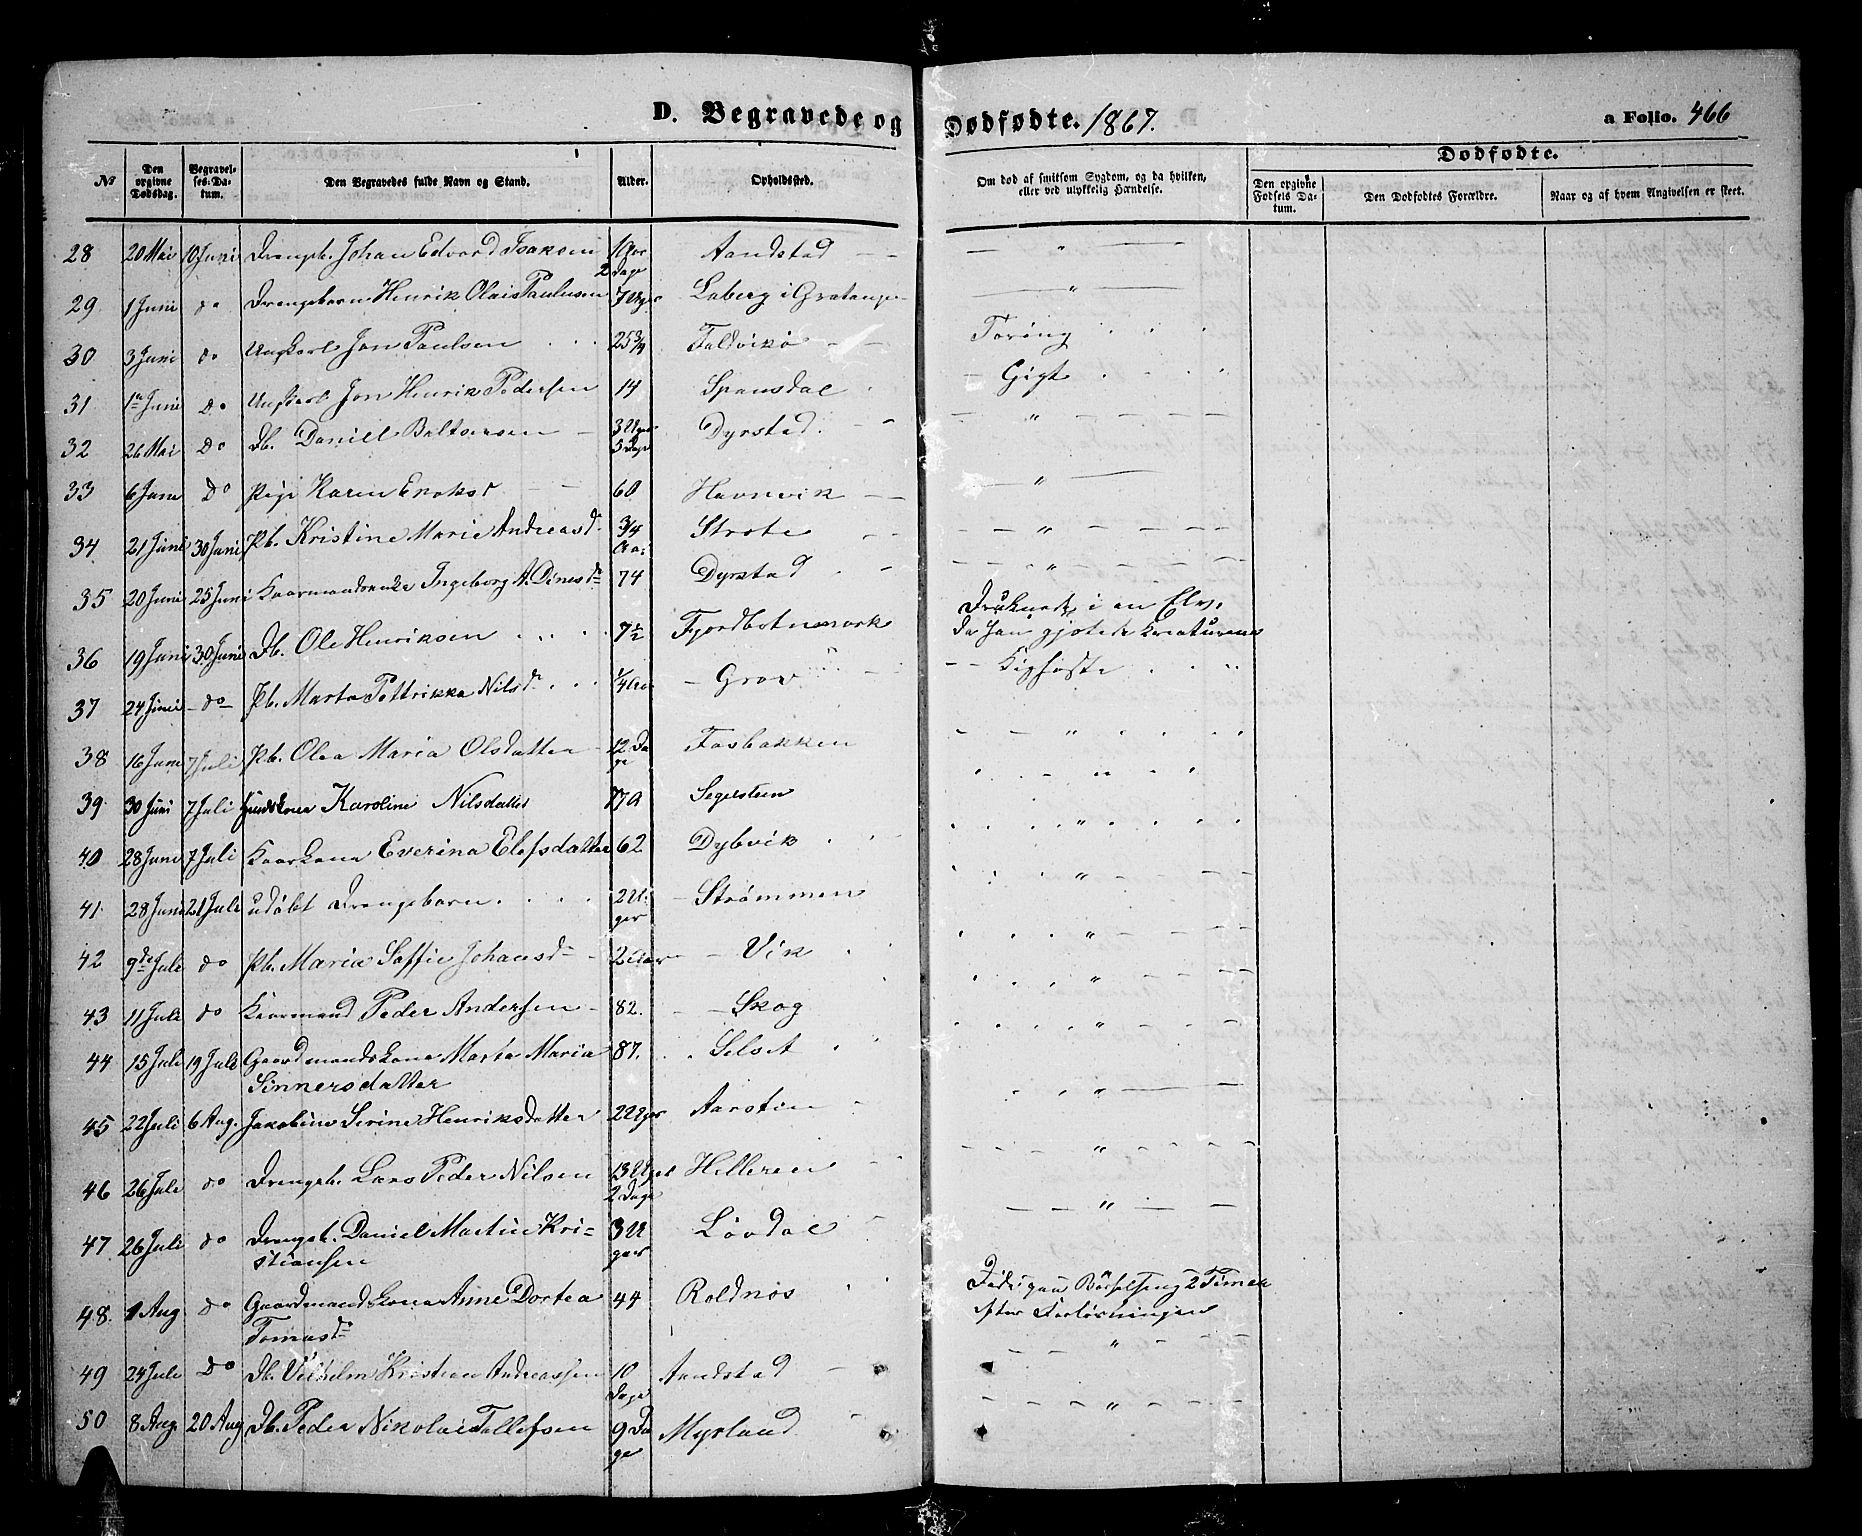 D. Begravede og Dødfødte. 1867. a Folio. 466
No
Den opgivne Dødsdag.
Begravelses-Datum.
Den Begravedes fulde Navn og Stand.
Alder.
Opholdssted.
Om død af smitsom Sygdom, og da hvilken, eller ved ulykkelig Hændelse.
Dødfødte.
Den opgivne Fødsels Datum.
Den Dødfødtes Forældre.
Naar og af hvem Angivelsen er skeet.
28 20 Mai 10 Juni Drengeb. Johan Edvard Isaksen 2 Dage Aandstad — " —
29 1 Juni do Drengebarn Henrik Olais Paulusen 7 Uger Laberg i Gratangen — " —
30 3 Juni do Ungkarl Jon Paulsen 25 3/4 Foldvik Tæring
31 1 Juni Do Ungkarl Jon Henrik Pedersen 14 Spansdal Gigt
32 26 Mai Do Db. Daniel Baltsersen 3 Uger 5 Dage Dyrstad — " —
33 6 Juni Do Pige Karen Enoksd 60 Havnvik — " —
34 21 Juni 30 Juni Pb. Kristine Marie Andreasd. 3/4 Aar Strate — " —
35 20 Juni 25 Juni Kaarmandsenke Ingeborg A. Dinesdr 74 Dyrstad — " —
36 19 Juni 30 Juni Db. Ole Henriksen 7 1/2 Fjordbotnmark Druknede i en Elv,
da han gjætede Kreaturene
37 24 Juni do Pb. Marta Pettrikka Nilsdr 1/4 Aar Grov Kighoste
38 16 Juni 7 Juli Pb. Olea Maria Olsdatter 12 Dage Fosbakken — " —
39 30 Juni 7 Juli Huuskone Karoline Nilsdatter 77 A Segelsteen — " —
40 28 Juni 7 Juli Kaarkone Everina Elefsdatter 62 Dybvik — " —
41 28 Juni 21 Juli udøbt Drengebarn 2 Uger Strømmen — " —
42 9de Juli do Pb. Maria Soffie Johansdr 2 Aar Vik — " —
43 11 Juli do Kaarmand Peder Andersen 82. Skog — " —
44 15 Juli 19 Juli Gaardmandskone Marta Maria 87. Selset — " —
Sinnersdatter
45 22 Juli 6 Aug. Jakobine Serine Henriksdatter 2 Uger Aarsten — " —
46 26 Juli do Drengeb. Lars Peder Nilsen 13 Uger 2 Dage Hilleren — " —
47 26 Juli do Drengeb. Daniel Martin Kri- 3 Uger Løvdal — " —
stiansen
48. 1 Aug do Gaardmandskone Anne Dortea 44 Roldnøs Døde paa Barselseng 2 Timer
Tomasdr efter Forløsningen
49 24 Juli Do Db. Vilhelm Kristian Andreassen 10 Dage Aandstad — " —
50 8 Aug. 20 Aug Db. Peder Nikolai Tollefsen 9 Dage Myrland — " —